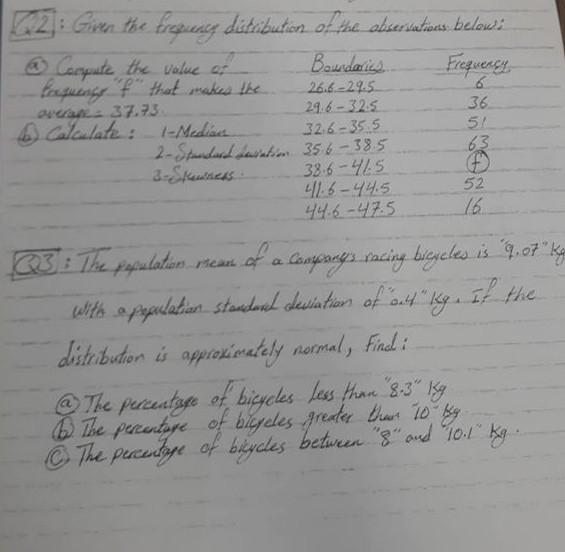 Q2: Given the frequency distribution of the observations below:
ⓐ Compute the value of
frequency "f" that makes the
average = 37.73.
ⓑ Calculate: 1-Median
2-Standard deviation
3-Skewness.
Boundaries Frequency
26.6-29.5 6
29.6-32.5 36
32.6-35.5 51
35.6-38.5 63
38.6-41.5 f
41.6-44.5 52
44.6-47.5 16
Q3: The population mean of a company's racing bicycles is "9.07" Kg
with a population standard deviation of "0.4" Kg. If the
distribution is approximately normal, Find:
ⓐ The percentage of bicycles less than "8.3" Kg
ⓑ The percentage of bicycles greater than "10" Kg.
ⓒ The percentage of bicycles between "8" and "10.1" Kg.